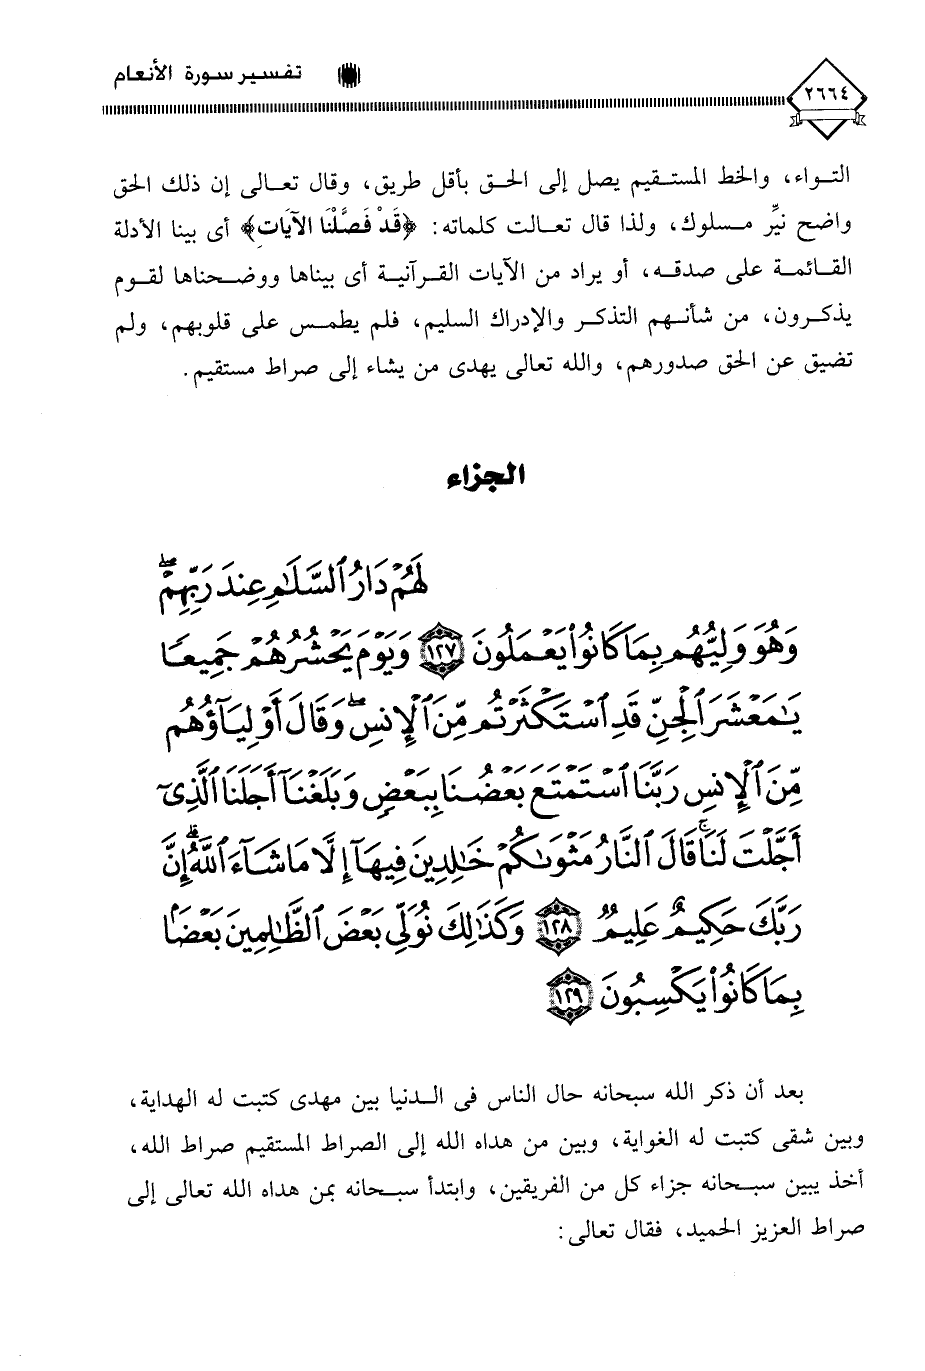 تفسير سورة الأنعام
٢٦٦٤
التواء، والخط المستقيم يصل إلى الحق بأقل طريق، وقال تعالى إن ذلك الحق
واضح نيِّر مسلوك، ولذا قال تعالت كلماته: ﴿قَدْ فَصَّلْنَا الآيَاتِ﴾ أى بينا الأدلة
القائمة على صدقه، أو يراد من الآيات القرآنية أى بيناها ووضحناها لقوم
يذكرون، من شأنهم التذكر والإدراك السليم، فلم يطمس على قلوبهم، ولم
تضيق عن الحق صدورهم، والله تعالى يهدى من يشاء إلى صراط مستقيم.
الجزاء
لَهُمْ دَارُ ٱلسَّلَٰمِ عِندَ رَبِّهِمْ ۖ
وَهُوَ وَلِيُّهُم بِمَا كَانُوا۟ يَعْمَلُونَ ١٢٧ وَيَوْمَ يَحْشُرُهُمْ جَمِيعًا
يَٰمَعْشَرَ ٱلْجِنِّ قَدِ ٱسْتَكْثَرْتُم مِّنَ ٱلْإِنسِ ۖ وَقَالَ أَوْلِيَآؤُهُم
مِّنَ ٱلْإِنسِ رَبَّنَا ٱسْتَمْتَعَ بَعْضُنَا بِبَعْضٍ وَبَلَغْنَآ أَجَلَنَا ٱلَّذِىٓ
أَجَّلْتَ لَنَا ۚ قَالَ ٱلنَّارُ مَثْوَىٰكُمْ خَٰلِدِينَ فِيهَآ إِلَّا مَا شَآءَ ٱللَّهُ ۗ إِنَّ
رَبَّكَ حَكِيمٌ عَلِيمٌ ١٢٨ وَكَذَٰلِكَ نُوَلِّى بَعْضَ ٱلظَّٰلِمِينَ بَعْضًۢا
بِمَا كَانُوا۟ يَكْسِبُونَ ١٢٩
بعد أن ذكر الله سبحانه حال الناس فى الدنيا بين مهدى كتبت له الهداية،
وبين شقى كتبت له الغواية، وبين من هداه الله إلى الصراط المستقيم صراط الله،
أخذ يبين سبحانه جزاء كل من الفريقين، وابتدأ سبحانه بمن هداه الله تعالى إلى
صراط العزيز الحميد، فقال تعالى: